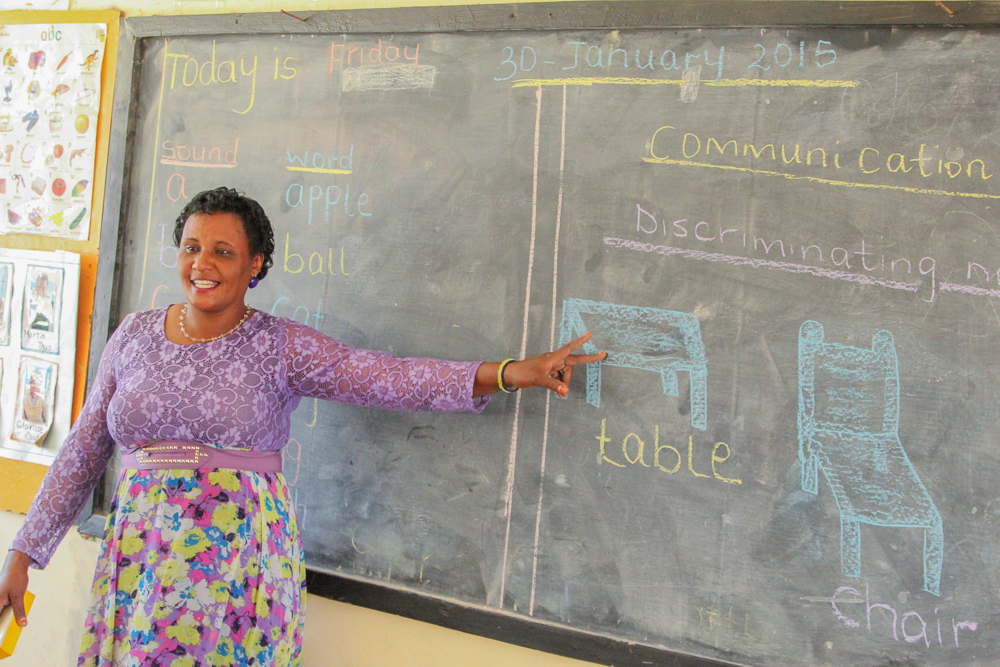 abc
Today is Friday
30-January 2015
sound word
a apple
b ball
c cat
g
h
Communication
Discriminating
table
chair